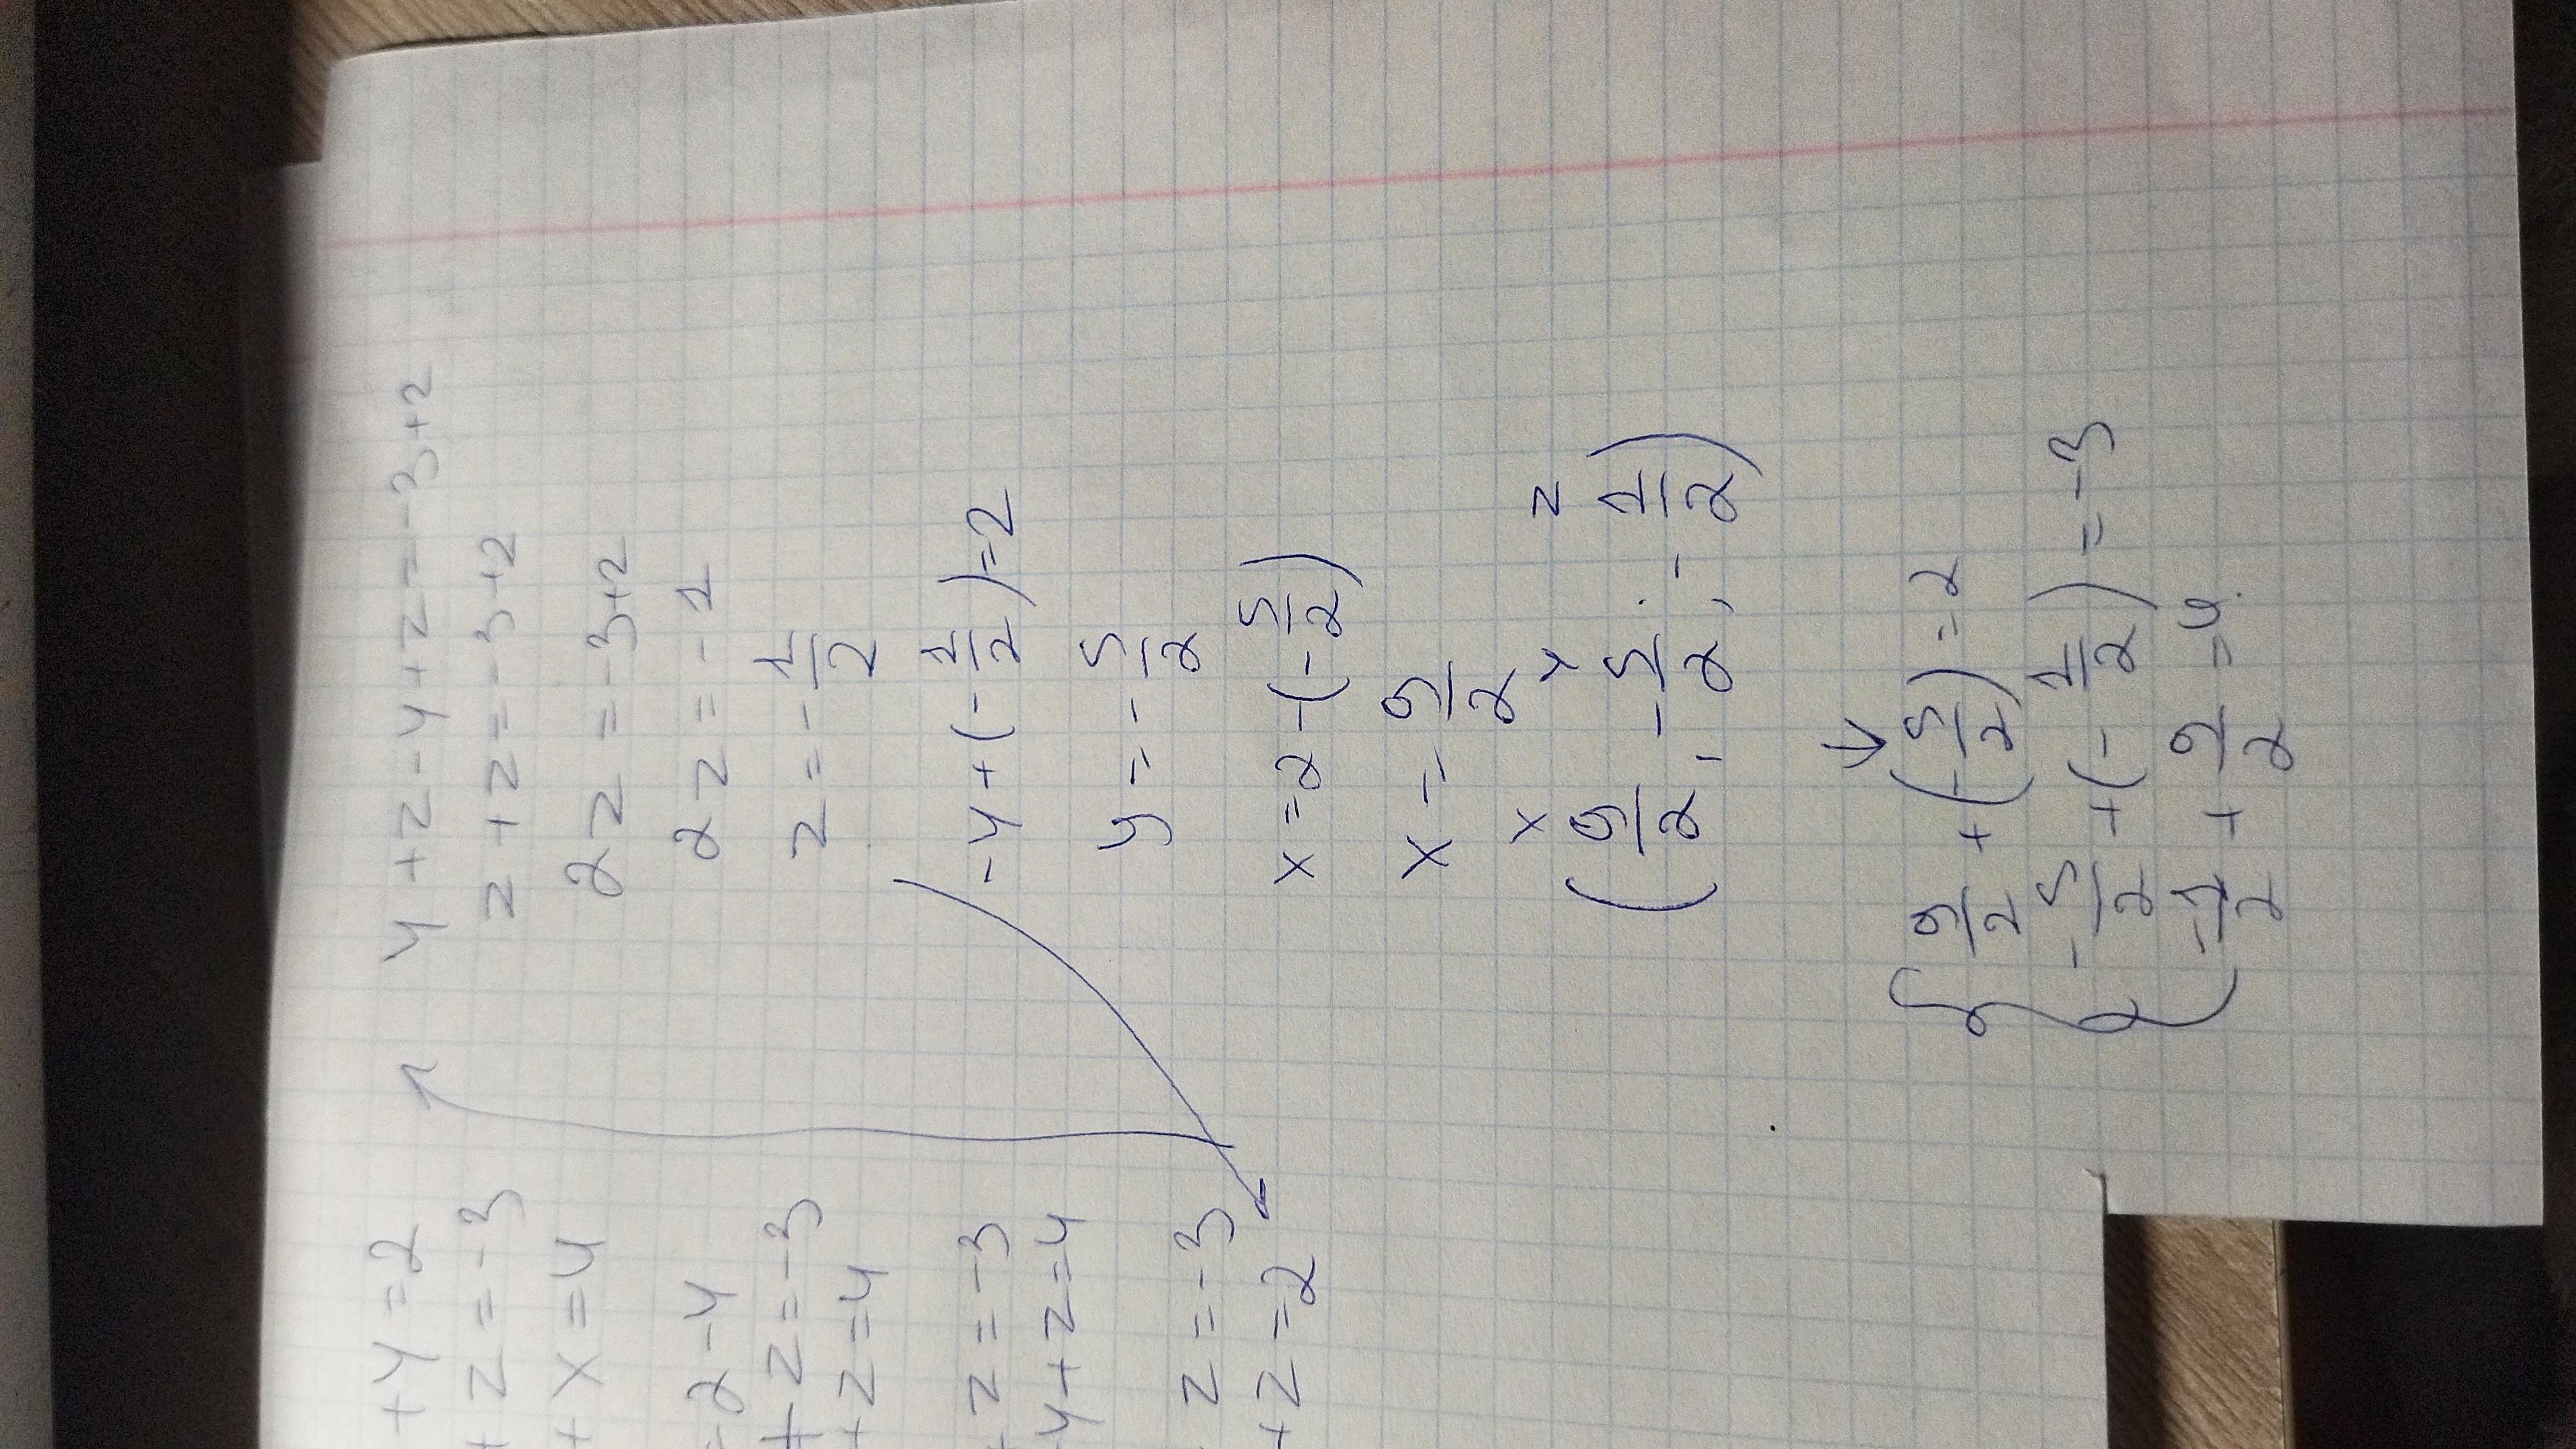 +y=2
+z=-3
+x=4
=2-y
+z=-3
+z=4
+z=-3
-y+z=4
z=-3
+z=2
y+z-y+z=-3+2
z+z=-3+2
2z=-3+2
2z=-1
z=-1/2
-y+(-1/2)=2
y=-5/2
x=2-(-5/2)
x=9/2
x y z
(9/2, -5/2; -1/2)
↓
{9/2+(-5/2)=2
-5/2+(-1/2)=-3
-1/2+9/2=4.